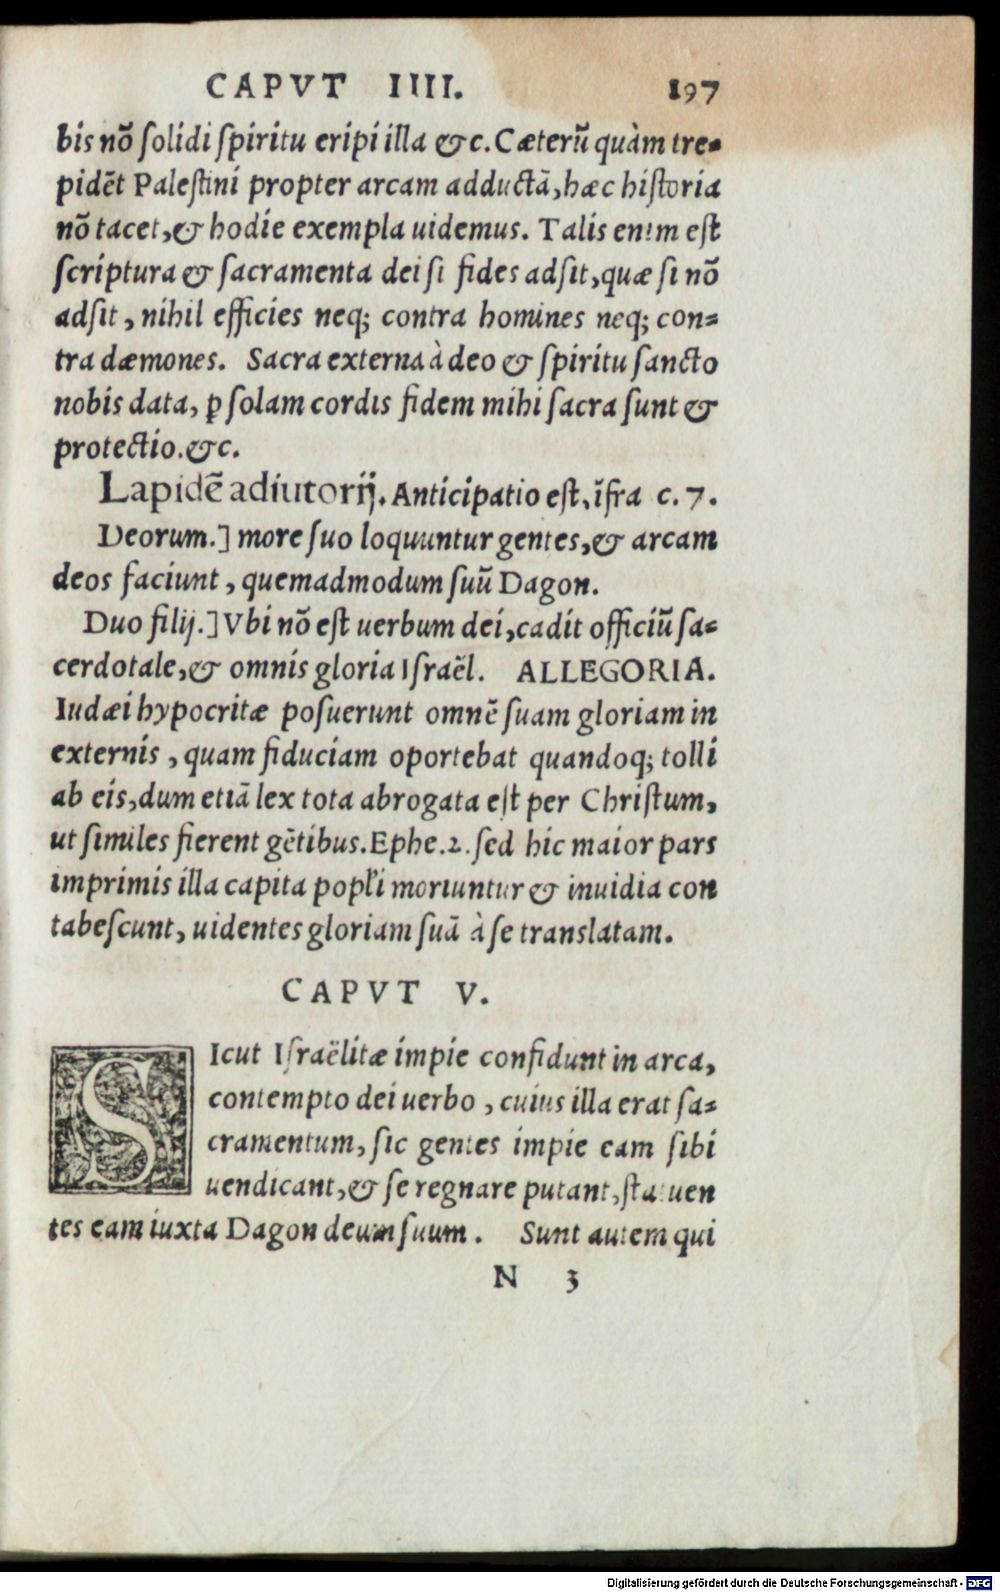 CAPVT IIII. 197
bis nõ ſolidi ſpiritu eripi illa &c. Cæterũ quàm tre-
pidẽt Palestini propter arcam adductã, hæc historia
nõ tacet, & hodie exempla uidemus. Talis enim est
ſcriptura & ſacramenta dei ſi fides adſit, quæ ſi nõ
adſit, nihil efficies neq; contra homines neq; con-
tra dæmones. Sacra externa à deo & ſpiritu ſancto
nobis data, ꝑ ſolam cordis fidem mihi ſacra ſunt &
protectio. &c.
Lapidẽ adiutorij. Anticipatio est, ĩfra c. 7.
Deorum.] more ſuo loquuntur gentes, & arcam
deos faciunt, quemadmodum ſuũ Dagon.
Duo filij.] Vbi nõ est uerbum dei, cadit officiũ ſa-
cerdotale, & omnis gloria Iſraël. ALLEGORIA.
Iudæi hypocritæ poſuerunt omnẽ ſuam gloriam in
externis, quam fiduciam oportebat quandoq; tolli
ab eis, dum etiã lex tota abrogata est per Christum,
ut ſimiles fierent gẽtibus. Ephe. 2. ſed hic maior pars
imprimis illa capita popl'i moriuntur & inuidia con
tabeſcunt, uidentes gloriam ſuã à ſe translatam.
CAPVT V.
SIcut Iſraëlitæ impie confidunt in arca,
contempto dei uerbo, cuius illa erat ſa-
cramentum, ſic gentes impie eam ſibi
uendicant, & ſe regnare putant, statuen
tes eam iuxta Dagon deum ſuum. Sunt autem qui
N 3
Digitalisierung gefördert durch die Deutsche Forschungsgemeinschaft - DFG